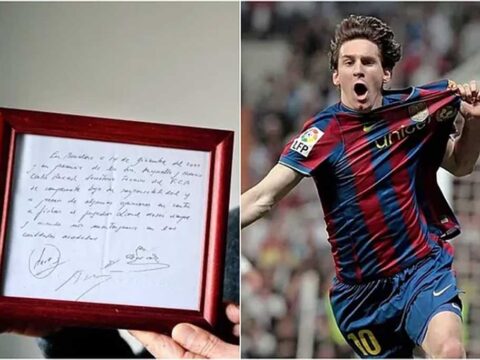 En Barcelona a 14 de diciembre del 2000
en presencia de los Srs Minguella y Horacio
Carles Rexach Secretario Técnico del F.C.B
se compromete bajo su responsabilidad y
a pesar de algunas opiniones en contra
a fichar al jugador Lionel Messi siempre
y cuando nos mantengamos en las
cantidades acordadas
LFP
unicef
10